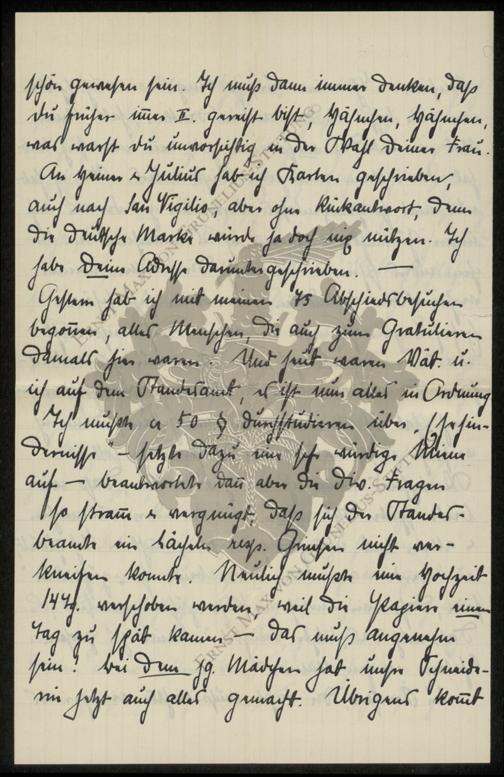 schön gewesen sein. Ich muß dann immer denken, daß
du früher immer II. gereist bist, Hähnchen, Hähnchen,
was warst du unvorsichtig in der Wahl deiner Frau.
An Heiner u Julius hab ich Karten geschrieben,
auch nach San Vigilio, aber ohne Rückantwort, denn
die deutsche Marke würde ja doch nix nützen. Ich
habe Deine Adresse daruntergeschrieben. —
Gestern hab ich mit meinen 75 Abschiedsbesuchen
begonnen, alles Menschen, die auch zum Gratulieren
damals hier waren. Und heut waren Vat. u.
ich auf dem Standesamt, es ist nun alles in Ordnung
Ich mußte ca 50 § durchstudieren über „Ehehin-
dernisse" – setzte dazu eine sehr würdige Miene
auf — beantwortete dann aber die div. Fragen
so stramm u vergnügt, daß sich der Standes-
beamte ein Lächeln resp. Grinsen nicht ver-
kneifen konnte. Neulich mußte eine Hochzeit
14 Tg. verschoben werden, weil die Papiere einen
Tag zu spät kamen — das muß angenehm
sein! Bei dem jg. Mädchen hat unsre Schneide-
rin jetzt auch alles gemacht. Übrigens kommt
ERNST MAX VON GRUNELIUS-STIFTUNG
ERNST MAX VON GRUNELIUS-STIFTUNG